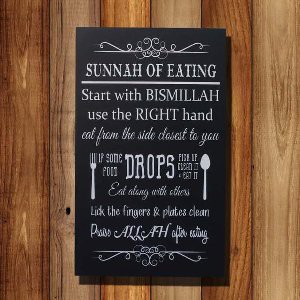 SUNNAH OF EATING
Start with BISMILLAH
use the RIGHT hand
eat from the side closest to you
IF SOME FOOD DROPS PICK UP CLEAN IT & EAT IT
Eat along with others
Lick the fingers & plates clean
Praise ALLAH after eating